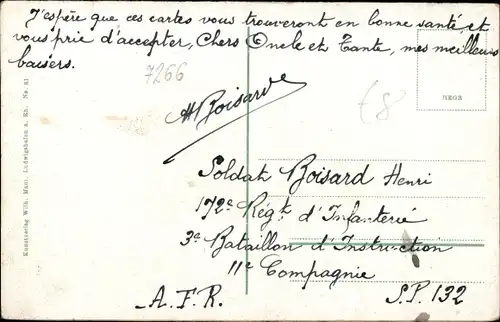 J'espère que ces cartes vous trouveront en bonne santé, et
vous prie d'accepter, Chers Oncle et Tante, mes meilleurs
baisers.
7266
HBoisard
€8
MEOR
Soldat Boisard Henri
172e Régt d'Infanterie
3e Bataillon d'Instruction
11e Compagnie
A.F.R. S.P. 132
Kunstverlag Wilh. Munt. Ludwigshafen a. Rh. No. 81